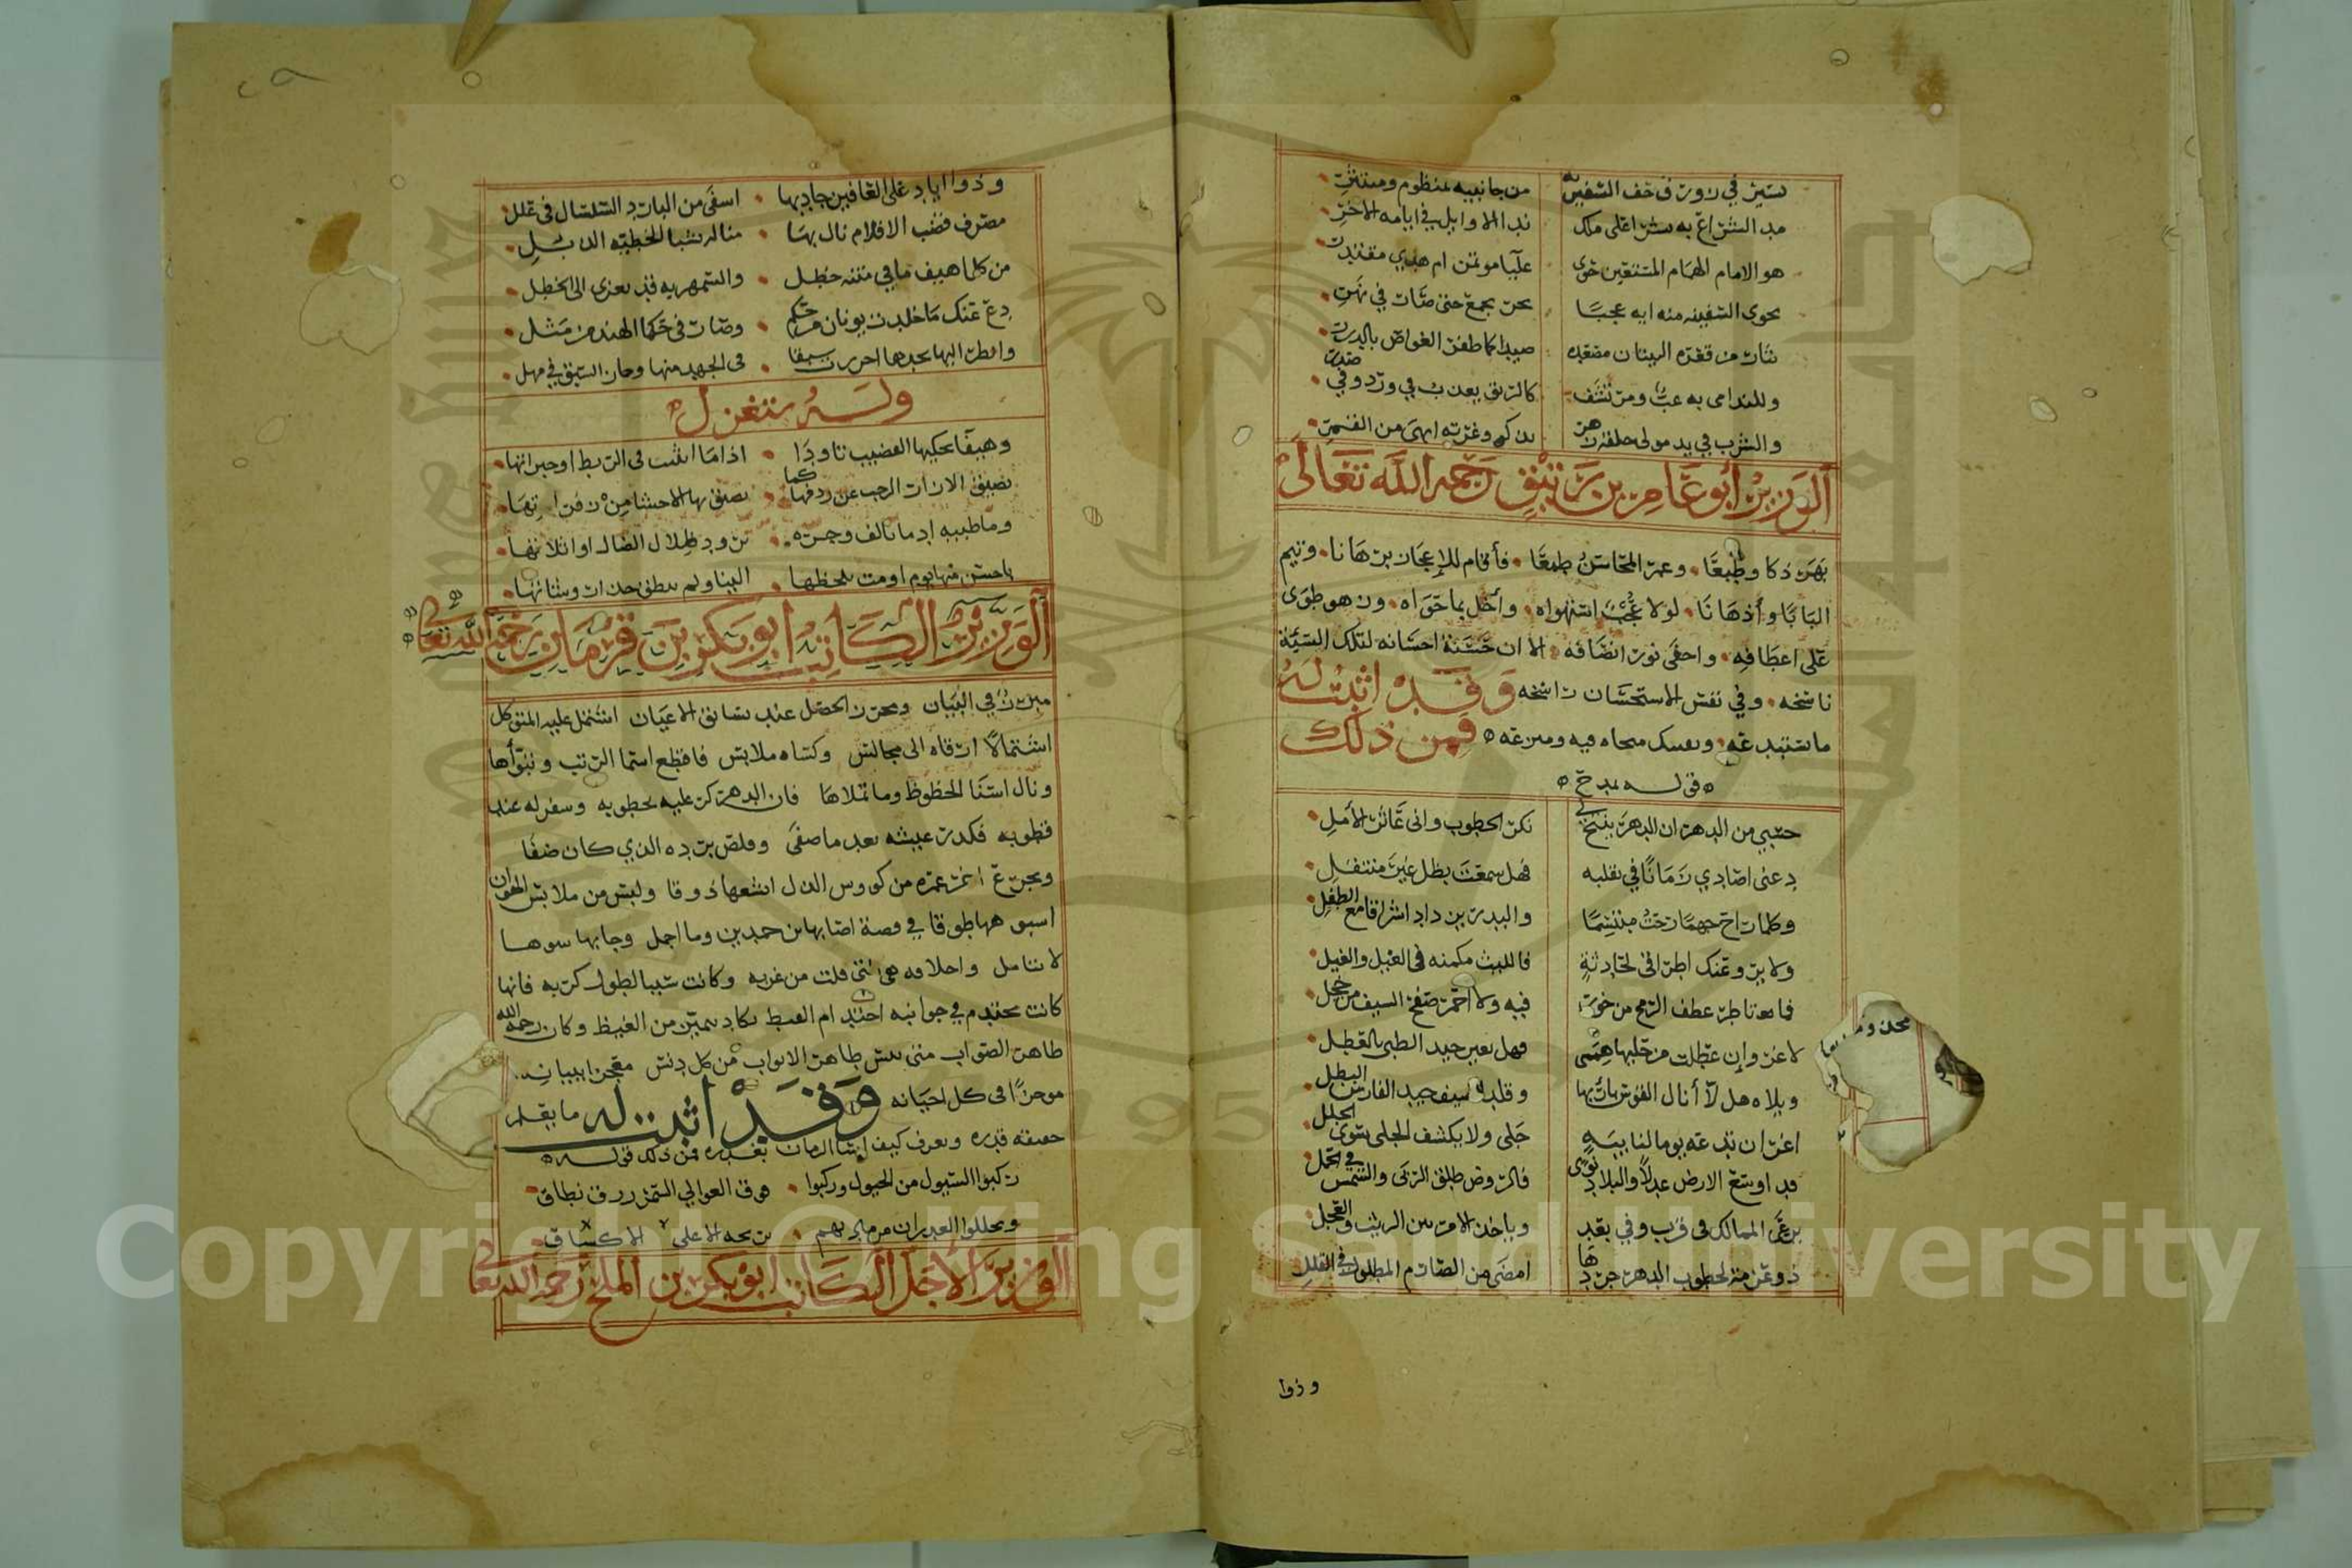 تسير في زورق خف السفين به من جانبيه بمنظوم ومنتثر
مد الشراع به بشرا على ملك بذ الاوايل في ايامه الاخر
هو الامام الهمام المستعين حوى عليا موتمن ام هدي مقتدر
تحوى السفينه منه ايه عجبا بحر تجمع حتى صار في نهر
تثار من قعره النينان مصعده صيدا كما ظفر الغواص بالدرر
وللندامى به عب ومرتشف كالريق يعذب في ورد وفي صدر
والشرب في يد مولى خلقه زهر يذكو وغرته ابهى من القمر
الوزير ابو عامر بن ينق رحمه الله تعالى
بهر ذكا وطبعا وعمر المحاسن طبعا فأقام للإعجاز برهانا وتيم
البابا وأذهانا لولا عجب استهواه وأخل بما حواه وزهو طوى
على اعطافه واخفى نور انصافه الا ان حسنة احسانه لتلك السيئة
ناسخه وفي نفس الاستحسان راسخه وقد اثبت له
ما ستبدعه فمن ذلك
قوله يمدح
حسبي من الدهر ان الدهر بكر الخطوب واني عاثر الأمل
دعني اصادي زمانا في تقلبه فهل سمعت بظل غير منتقل
وكلما راح جهما رحت مبتسما والبدر يزداد اشراقا مع الطفل
ولا يروعنك اطراقي لحادثة فالليث مكمنه في الغيل والغيل
فما تاطر عطف الرمح من خور فيه ولا احمر صفح السيف من خجل
لا غرو إن عطلت من حليها هممي فهل يعير جيد الظبي بالعطل
ويلاه هل لا أنال القوس باريها وقلد السيف جيد الفارس البطل
اغر ان ندعه يوما لنايبة جلى ولا يكشف الجلى سوى الجلل
قد اوسع الارض عدلا والبلاد ندى فالروض طلق الربى والشمس في الحمل
يرعى الممالك في قرب وفي بعد وياخذ الامر بين الريث والعجل
ذو عزمة لخطوب الدهر جردها امضى من الصارم المطلول في القلل
وذوا
وذوا اياد على العافين جاد بها اسقى من البارد السلسال في غلل
مصرف قضب الاقلام نال بها منال شبا الخطيه الذبل
من كل ما هيف ما في متنه خطل والسمهريه قد تعزى الى الخطل
دع عنك ما خلدت يونان من حكم وصار في حكما الهند من مثل
وانظر اليها تجدها احرزت سبقا في الجهد منها وحاز السبق في مهل
وله يتغزل
وهيفا يحكيها القضيب تاودا اذا ما انثنت في الريط او حبراتها
يضيق الازار الرحب عن ردفها كما يضيق بها الاحشا من زفراتها
وما ظبيه ادما تالف وجره ترود ظلال الضال او اثلاتها
باحسن منها يوم اومت بلحظها الينا ولم تنطق حذار وشاتها
الوزير الكاتب ابو بكر بن قزمان رحمه الله تعالى
مبرز في البيان ومحرز الخصل عند تسابق الاعيان اشتمل عليه المتوكل
اشتمالا ارقاه الى مجالس وكساه ملابس فاقطع اسما الرتب وتبوأها
ونال اسنا الحظوظ وما تملاها فان الدهر كر عليه بخطوبه وسفر له عند
قطوبه فكدر عيشه بعد ما صفى وقلص برده الذي كان ضفا
وتجرع اخر عمره من كووس الذل ابشعها ذوقا ولبس من ملابس الهوان
اسبو هها طوقا في قصة اصابها بن حمدين وما اجمل وجا بها سوها
لا تتامل واخلاقه هي التي فلت من غربه وكانت سببا لطول كربه فانها
كانت تحتدم في جوانبه احتدام القيظ تكاد تميز من الغيظ وكان رحمه الله
طاهر الصواب متى يبس طاهر الاثواب من كل دنس معجزا ببيانه
موجزا في كل احيانه وقد اثبت له ما يقدر
حقيقة قدره ويعرف كيف اسا الزمان بغدره فمن ذلك قوله
ركبوا السيول من الخيول وركبوا فوق العوالي السمر زرق نطاق
وتجللوا الغدران من ماذيهم مرتجة الا على الاكتاف
الوزير الاجل الكاتب ابو بكر بن الملح رحمه الله تعالى
Copyright © King Saud University